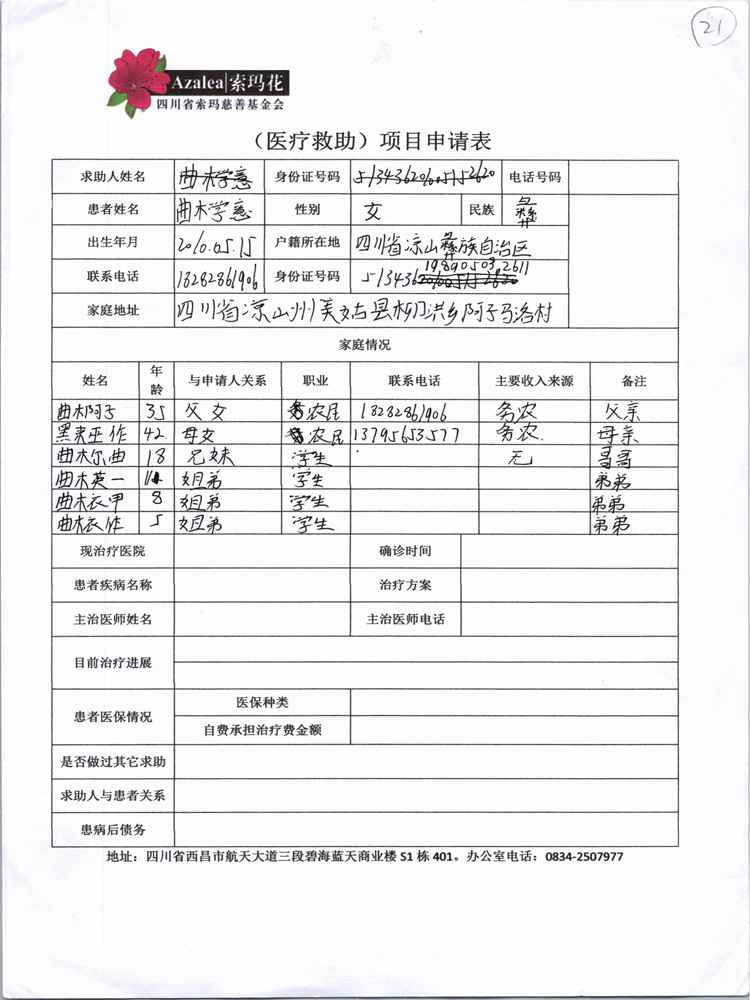 21
Azalea|索玛花
四川省索玛慈善基金会
（医疗救助）项目申请表
求助人姓名 曲木学惠 身份证号码 513436201005152620 电话号码
患者姓名 曲木学惠 性别 女 民族 彝
出生年月 2010.05.15 户籍所在地 四川省凉山彝族自治区
联系电话 18282861906 身份证号码 513436198905032611
家庭地址 四川省凉山州美姑县柳洪乡阿子马洛村
家庭情况
姓名 年龄 与申请人关系 职业 联系电话 主要收入来源 备注
曲木阿子 35 父女 农民 18282861906 务农 父亲
黑来亚作 42 母女 农民 13795653577 务农 母亲
曲木尔曲 18 兄妹 学生 无 哥哥
曲木英一 11 姐弟 学生 弟弟
曲木衣甲 8 姐弟 学生 弟弟
曲木衣作 5 姐弟 学生 弟弟
现治疗医院 确诊时间
患者疾病名称 治疗方案
主治医师姓名 主治医师电话
目前治疗进展
患者医保情况 医保种类
自费承担治疗费金额
是否做过其它求助
求助人与患者关系
患病后债务
地址：四川省西昌市航天大道三段碧海蓝天商业楼 S1 栋 401。办公室电话：0834-2507977